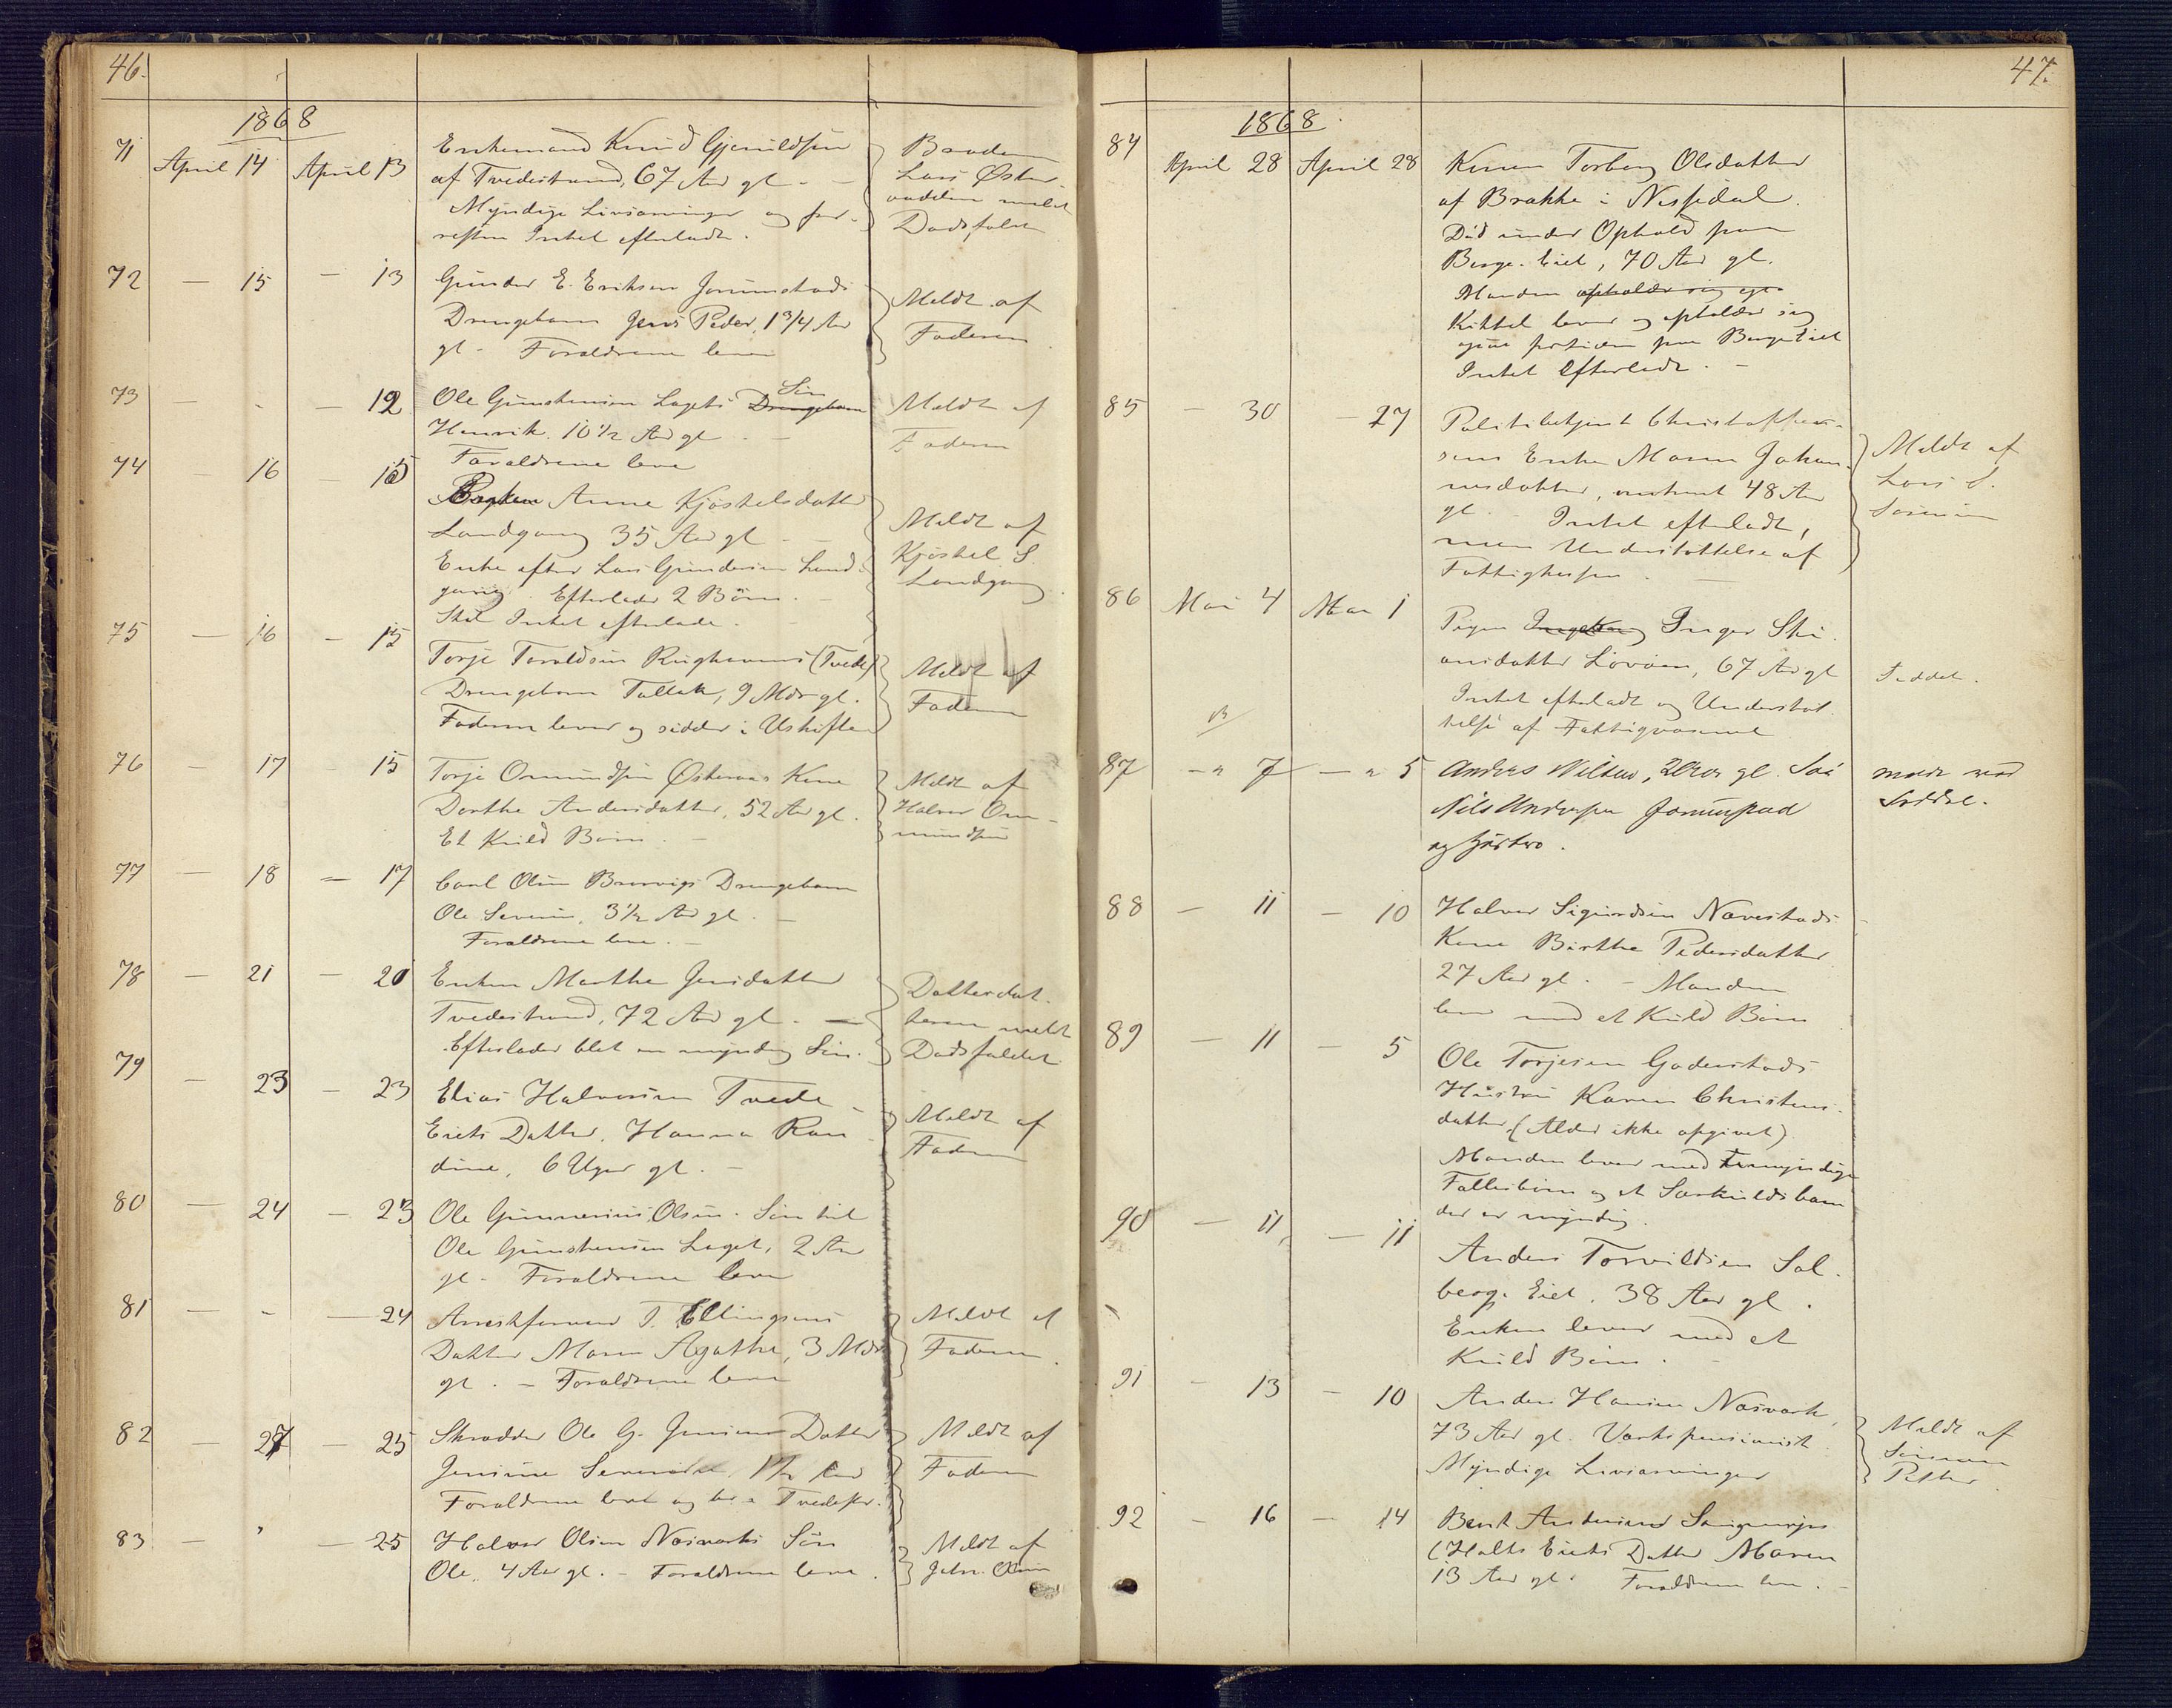 46.
1868
71 April 14 April 13 Enkemand Knud Gjeruldsen
af Tvedestrand, 67 Aar gl. —
Myndige Livsarvinger og for-
resten Intet efterladt.
Broderen
Lars Øster
melde
Dødsfaldet
72 — 15 — 13 Gunder E. Eriksen Jorunstads
Drengebarn Jens Peder, 1 3/4 Aar
gl. Forældrene lever
Meldt af
Faderen
73 — - — 12 Ole Gunstensen Lagets Drengebarn Søn
Henrik. 10 1/2 Aar gl. —
Forældrene leve
Meldt af
Faderen
74 — 16 — 15 Anne Kjøstelsdatter
Landgang 35 Aar gl. —
Enke efter Lars Gundersen Land-
gang. Efterlader 2 Børn. —
Skal Intet efterlade.
Meldt af
Kjøstel S.
Landgang
75 — 16 — 15 Torje Toraldsen (Tvede)
Drengebarn Tallak, 9 Mdr gl.
Faderen lever og sidder i Uskifte
Meldt af
Faderen
76 — 17 — 15 Torje Ommundsen Østeraas Kone
Dorthe Andersdatter, 52 Aar gl.
Et Kuld Børn. —
Meldt af
Halvor Om-
mundsen
77 — 18 — 17 Carl Olsen Drengebarn
Ole Severin, 3 1/2 Aar gl. —
Forældrene leve. —
78 — 21 — 20 Enken Marthe Jensdatter
Tvedestrand, 72 Aar gl. —
Efterlader blot en myndig Søn.
Datterdat-
teren meldt
Dødsfaldet.
79 — 23 — 23 Elias Halvorsen Tvede
Eiets Datter, Hanna Ran-
dine, 6 Uger gl. —
Meldt af
Faderen
80 — 24 — 23 Ole Gunnerius Olsen. Søn til
Ole Gunstensen Laget, 2 Aar
gl. Forældrene leve
81 — - — 24 Arrestforvarer T. Ellingsens
Datter Maren Agathe, 3 Mdr
gl. — Forældrene leve
Meldt af
Faderen.
82 — 27 — 25 Skrædder Ole G. Jensens Datter
Jensine 1 1/2 Aar
Forældrene leve og bo i Tvedestr.
Meldt af
Faderen
83 — " — 25 Halvor Olsen Næsværks Søn
Ole. 4 Aar gl. — Forældrene leve.
Meldt af
Olsen
47.
1868.
84 April 28 April 28 Konen Torborg Olsdatter
af Brække i Nissedal.
Død under Ophold paa
Berge-Eiet, 70 Aar gl.
Manden opholder sig ogs
Kittel lever og opholder sig
ogsaa fortiden paa Berge Eiet
Intet Efterladt. —
85 — 30 — 27 Politibetjent Christophersens
Enke Maren Johan-
nesdatter, omtrent 48 Aar
gl. Intet efterladt,
men Understøttelse af
Fattigkassen. —
Meldt af
Lars S.
Sørensen
86 Mai 4 Mai 1 Pigen Ingeborg Inger Ste-
ansdatter Løvøen, 67 Aar gl
Intet efterladt og Understøt-
telse af Fattigvæsenet
Seddel.
87 —" 7 — " 5 Anders Nilsen, 2 Aar gl. Søn
Nils Andersen Jorunstad
og Hustro.
meldt ved
Seddel.
88 — 11 — 10 Halvor Sigurdsen Navestads
Kone Birthe Pedersdatter
27 Aar gl. — Manden
lever med et Kuld Børn
89 — 11 — 5 Ole Torjesen Goderstads
Hustru Karen Christens-
datter. (Alder ikke opgivet)
Manden lever med umyndige
Fællesbørn og et Særkuldsbarn
der er myndig.
90 — 11 — 11 Anders Torvildsen Sol-
berg-Eiet. 38 Aar gl.
Enken lever med et
Kuld Børn. —
91 — 13 — 10 Anders Hansen Næsværk,
73 Aar gl. Værkspensionist.
Myndige Livsarvinger
Meldt af
Sønnen
Petter
92 — 16 — 14 Bent Andersens
(Holts Eiets Datter Maren
13 Aar gl. Forældrene leve. —